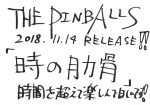 THE PINBALLS
2018.11.14 RELEASE!!
「時の肋骨」
時間を超えて楽しんで下さい!!